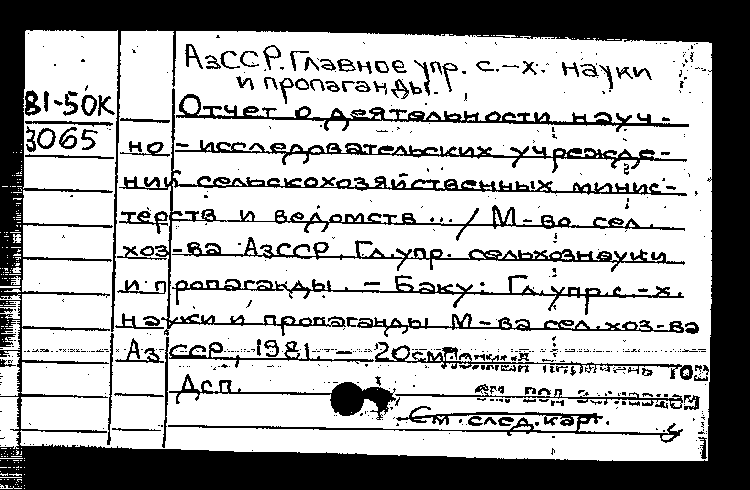 АзССР. Главное упр. с.-х. науки
и пропаганды.
81-50К
3065
Отчет о деятельности науч-
но-исследовательских учрежде-
ний сельскохозяйственных минис-
терств и ведомств ... / М-во сел.
хоз-ва АзССР, Гл. упр. сельхознауки
и пропаганды. - Баку: Гл. упр. с.-х.
науки и пропаганды М-ва сел. хоз-ва
АзССР, 1981. - 20см
Полный перечень том
см. под заглавием
Дсп.
См. след. карт.